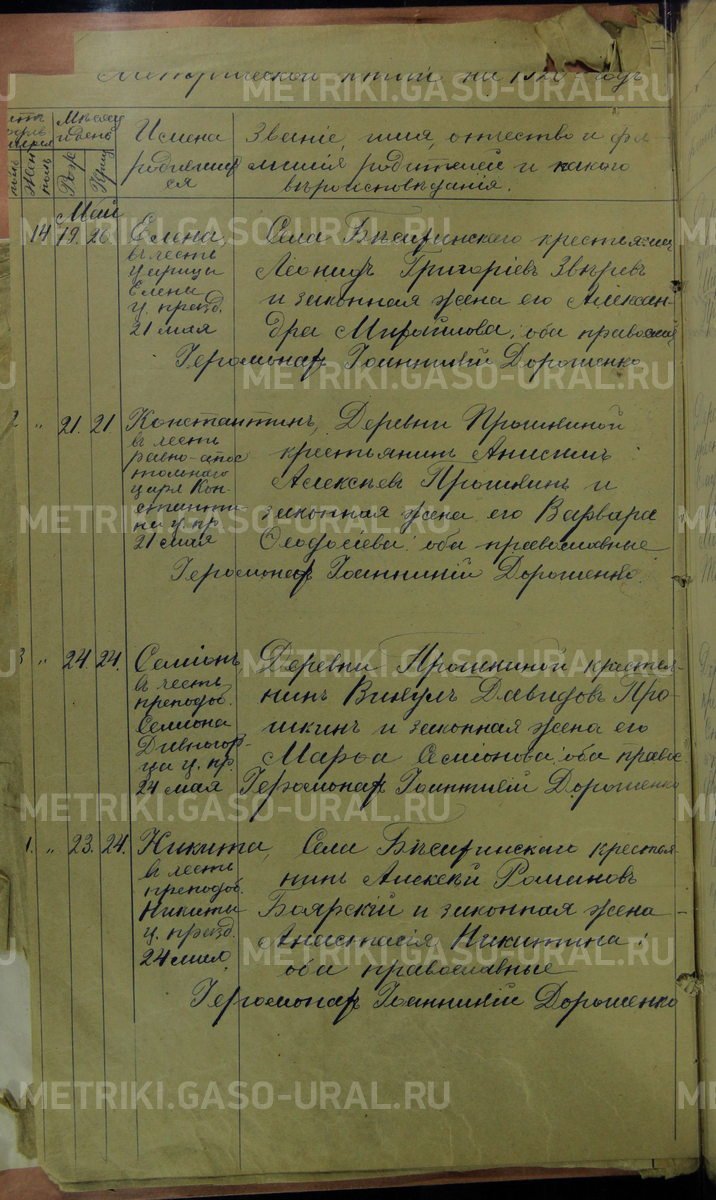 Метрической книги на 1920 годъ
Мѣсяцъ и день
Имена родившихся
Званіе, имя, отчество и фамилія родителей и какого вѣроисповѣданія.
Жен полъ
Рож
Крещ
Май
14 19. 20. Елена,
въ честь
царицы
Елены
ц. празд.
21 мая
Села крестьянинъ
Леонидъ Григоріевъ Звѣревъ
и законная жена его Алексан-
дра Михайлова; оба православ
Іеромонах Іоанникій Дорошенко
2 " 21. 21 Константинъ,
въ честь
равно-апос
тольнаго
царя Кон-
стантина
ц. пр.
21 мая
Деревни Прошкиной
крестьянинъ Анисимъ
Алексѣевъ Прошкинъ и
законная жена его Варвара
Ѳеодосіева; оба православные
Іеромонах Іоанникій Дорошенко
3 " 24. 24. Семіонъ,
въ честь
преподоб.
Семіона
Дивногор-
ца ц. пр.
24 мая
Деревни Прошкиной крестья-
нинъ Викулъ Давидовъ Про-
шкинъ и законная жена его
Марѳа Семіонова; оба правос
Іеромонах Іоанникій Дорошенко
" 23. 24. Никита,
въ честь
преподоб.
Никиты
ц. празд.
24 мая
Села крестья
нинъ Алексѣй Романовъ
Боярскій и законная жена
Анастасія Никитина;
оба православные
Іеромонах Іоанникій Дорошенко
METRIKI.GASO-URAL.RU